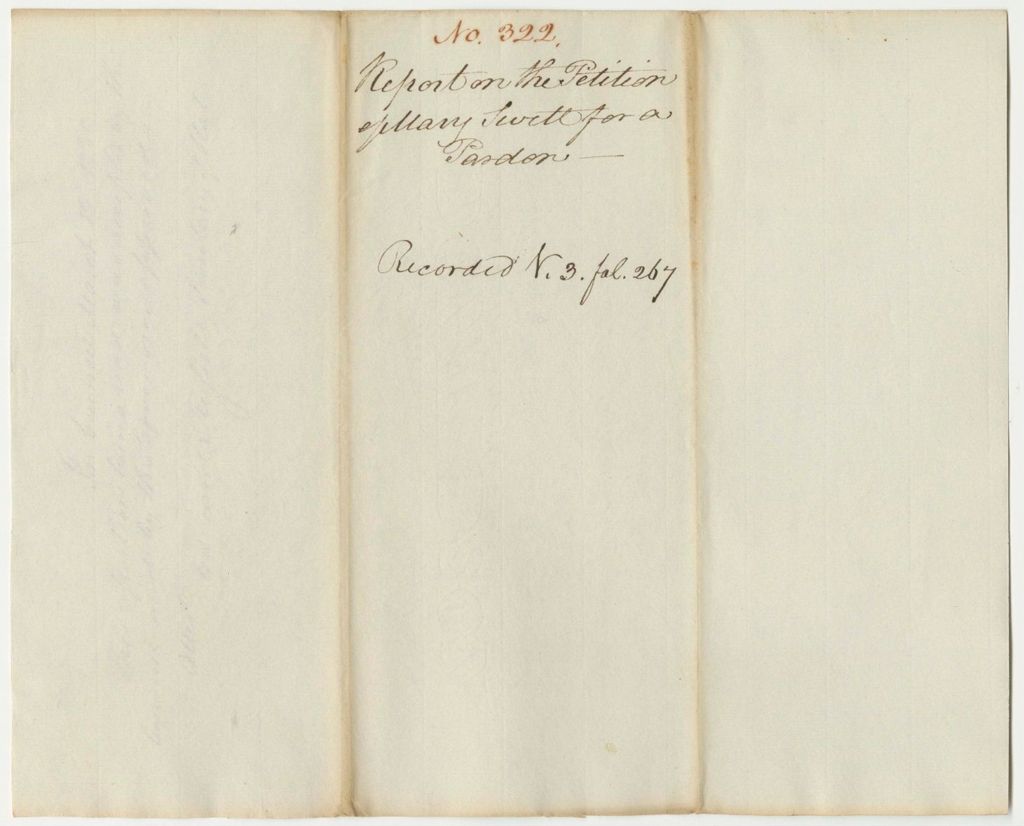 No. 322.
Report on the Petition
of Mary Swett for a
Pardon —
Recorded V. 3. fol. 267